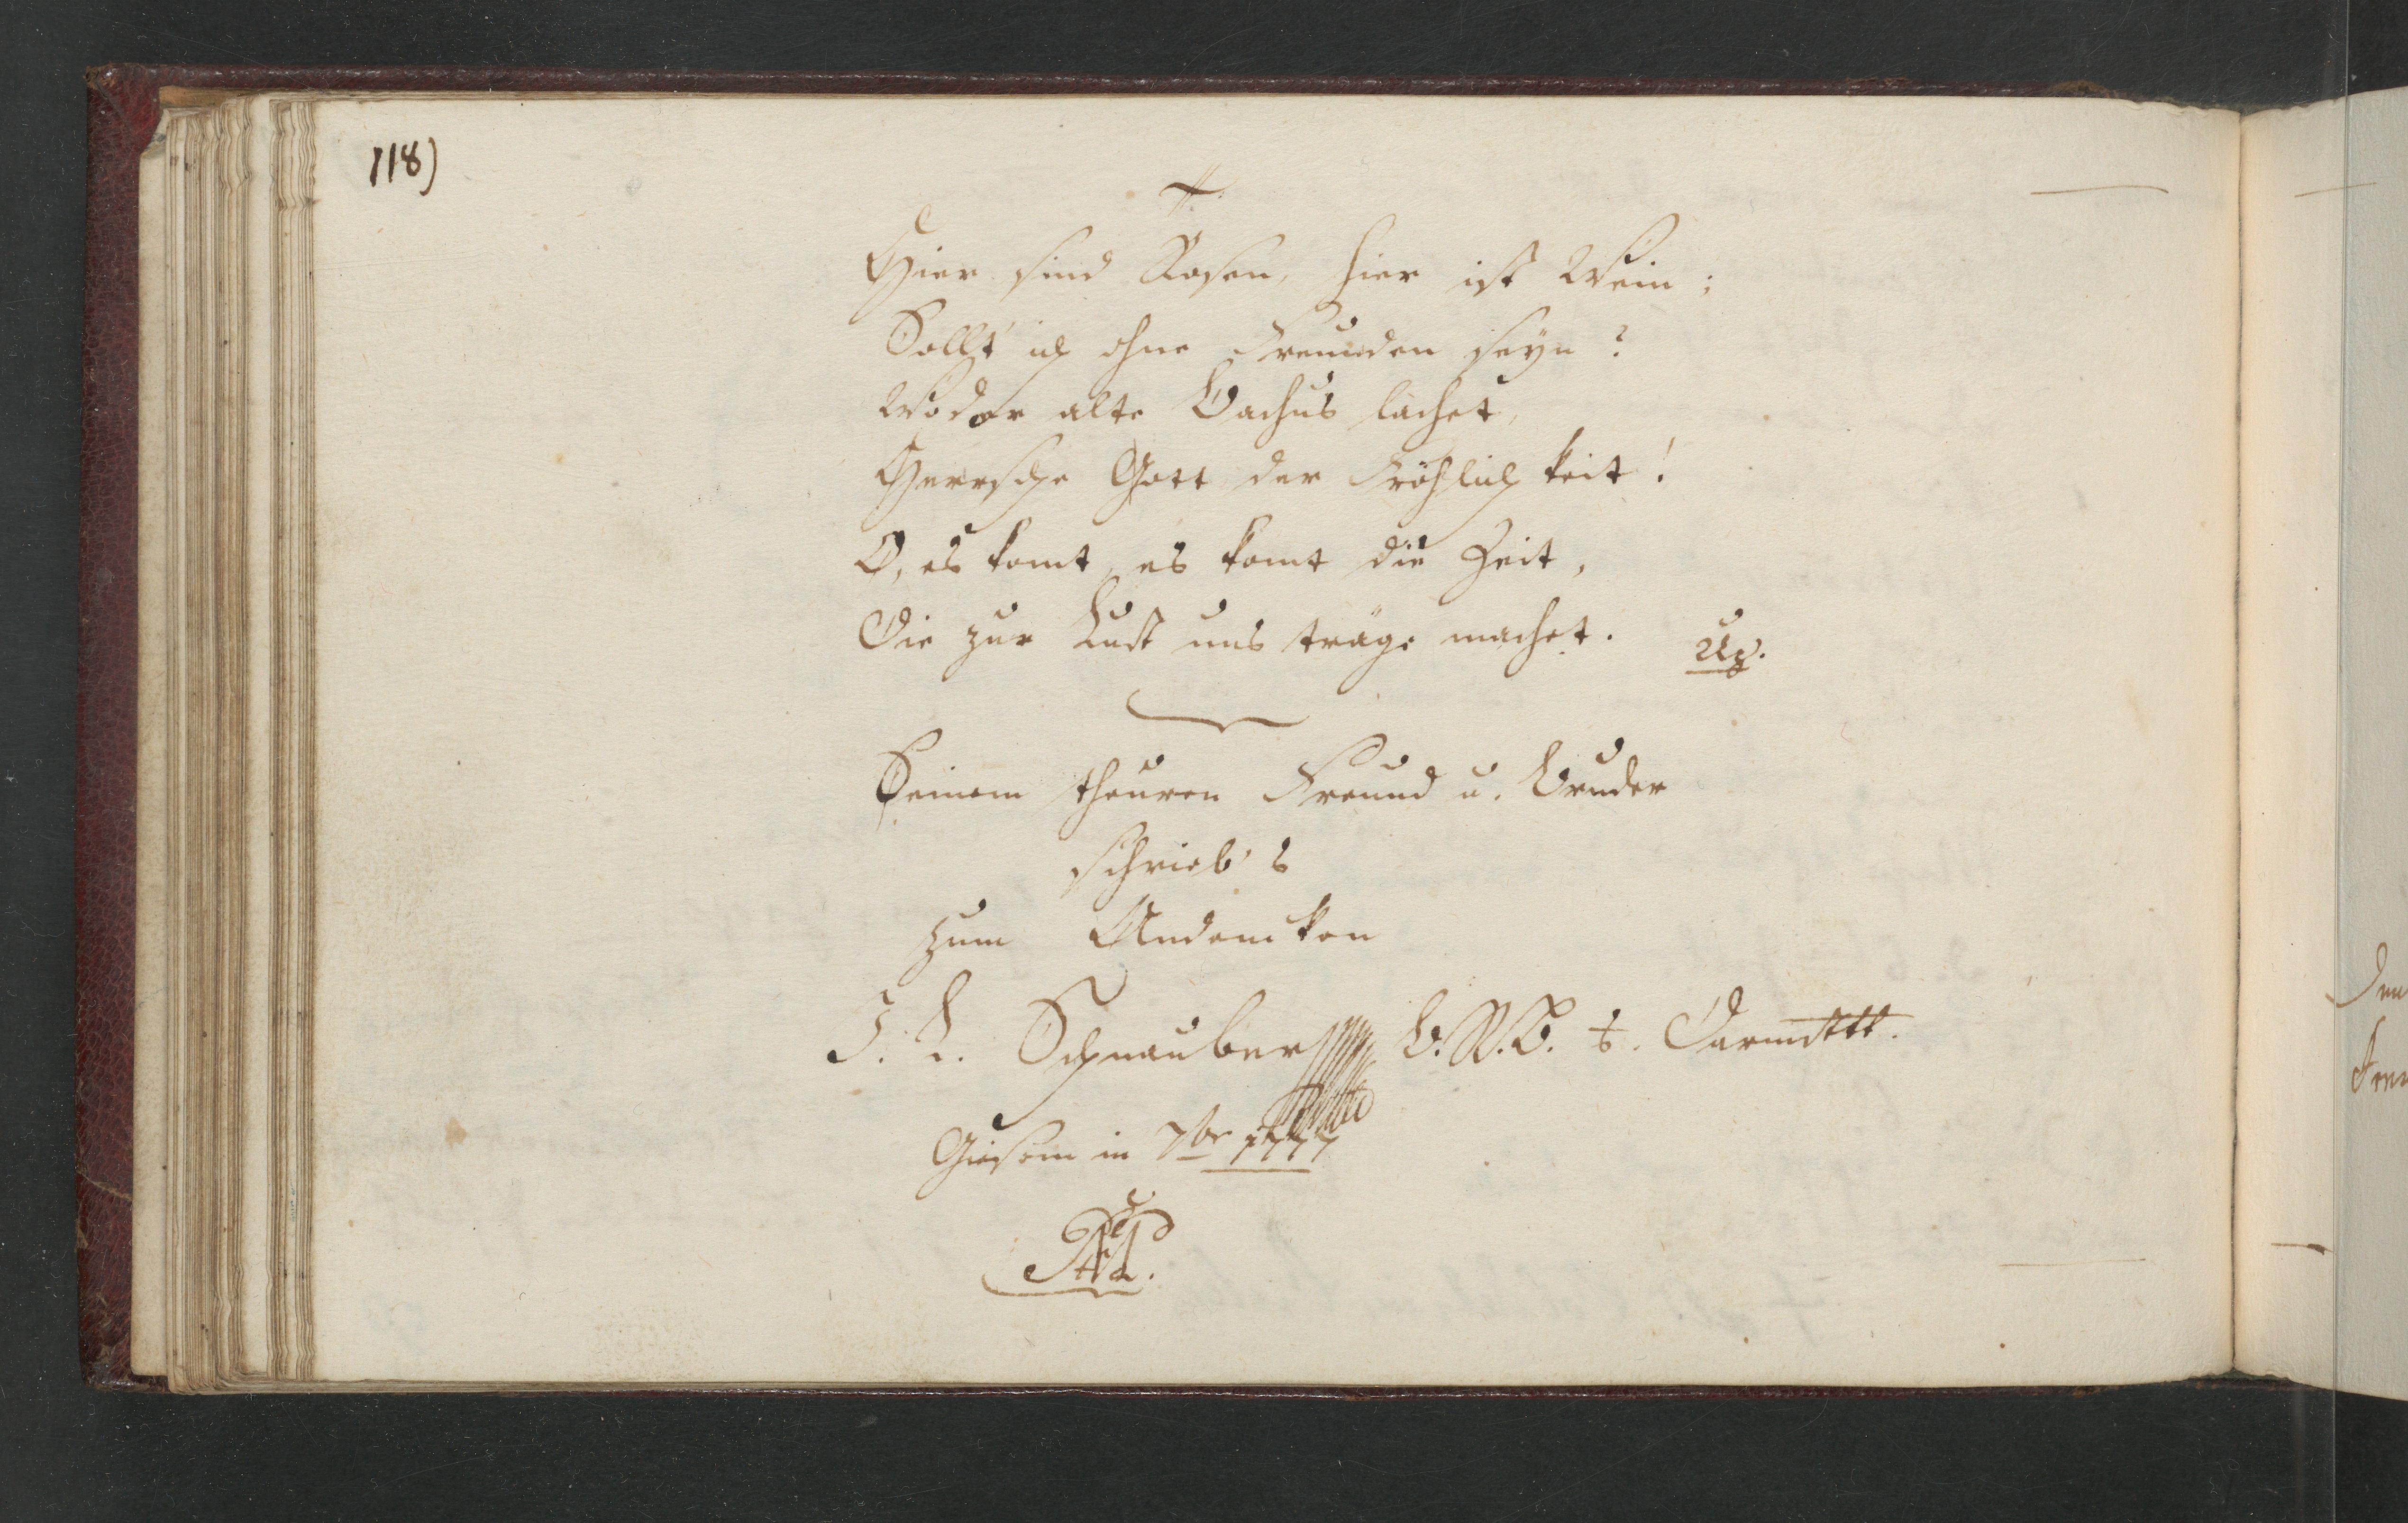 118)
Hier sind Rosen, hier ist Wein;
Sollt' ich ohne Freunden seyn?
Wo der alte Bachus lachet,
Herrsche Gott der Fröhlichkeit!
O, es komt, es komt die Zeit,
Die zur Lust uns träge machet.
Uz.
Seinem theuren Freund u. Bruder
schrieb's
zum Andencken
J. L. Schnauber
Darmsttt.
Giesem in 7br 1777